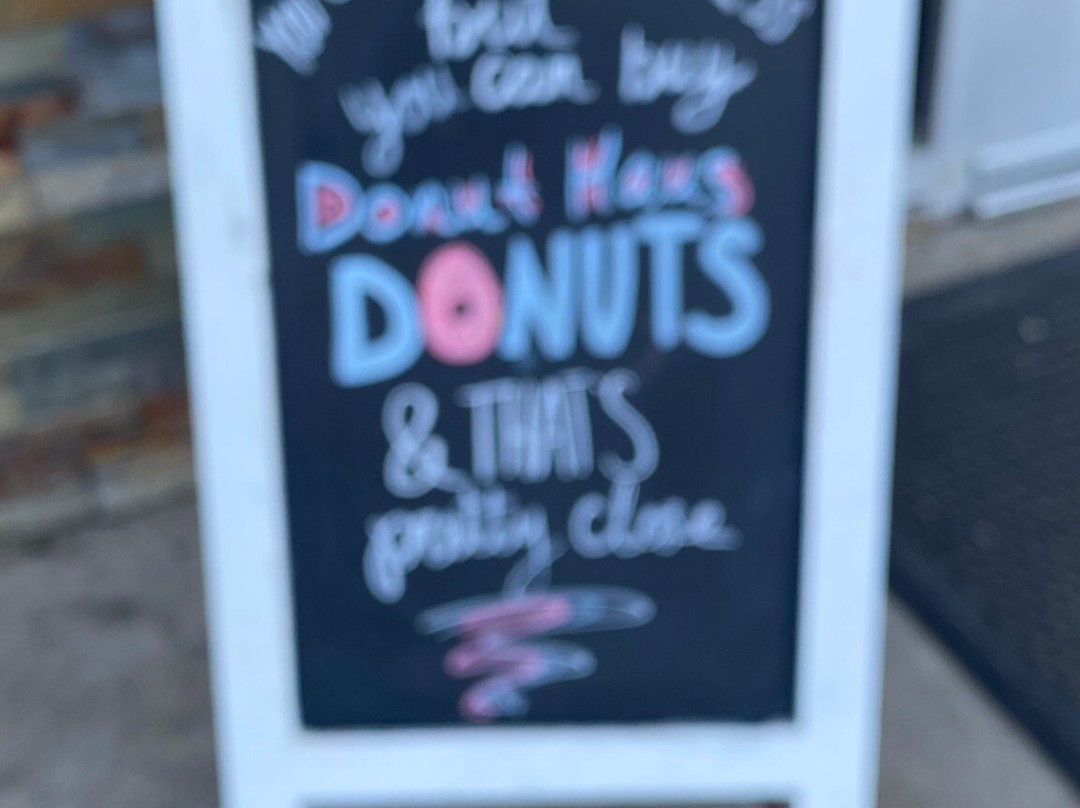 but
you can buy
Donut Haus
DONUTS
& THAT'S
pretty close